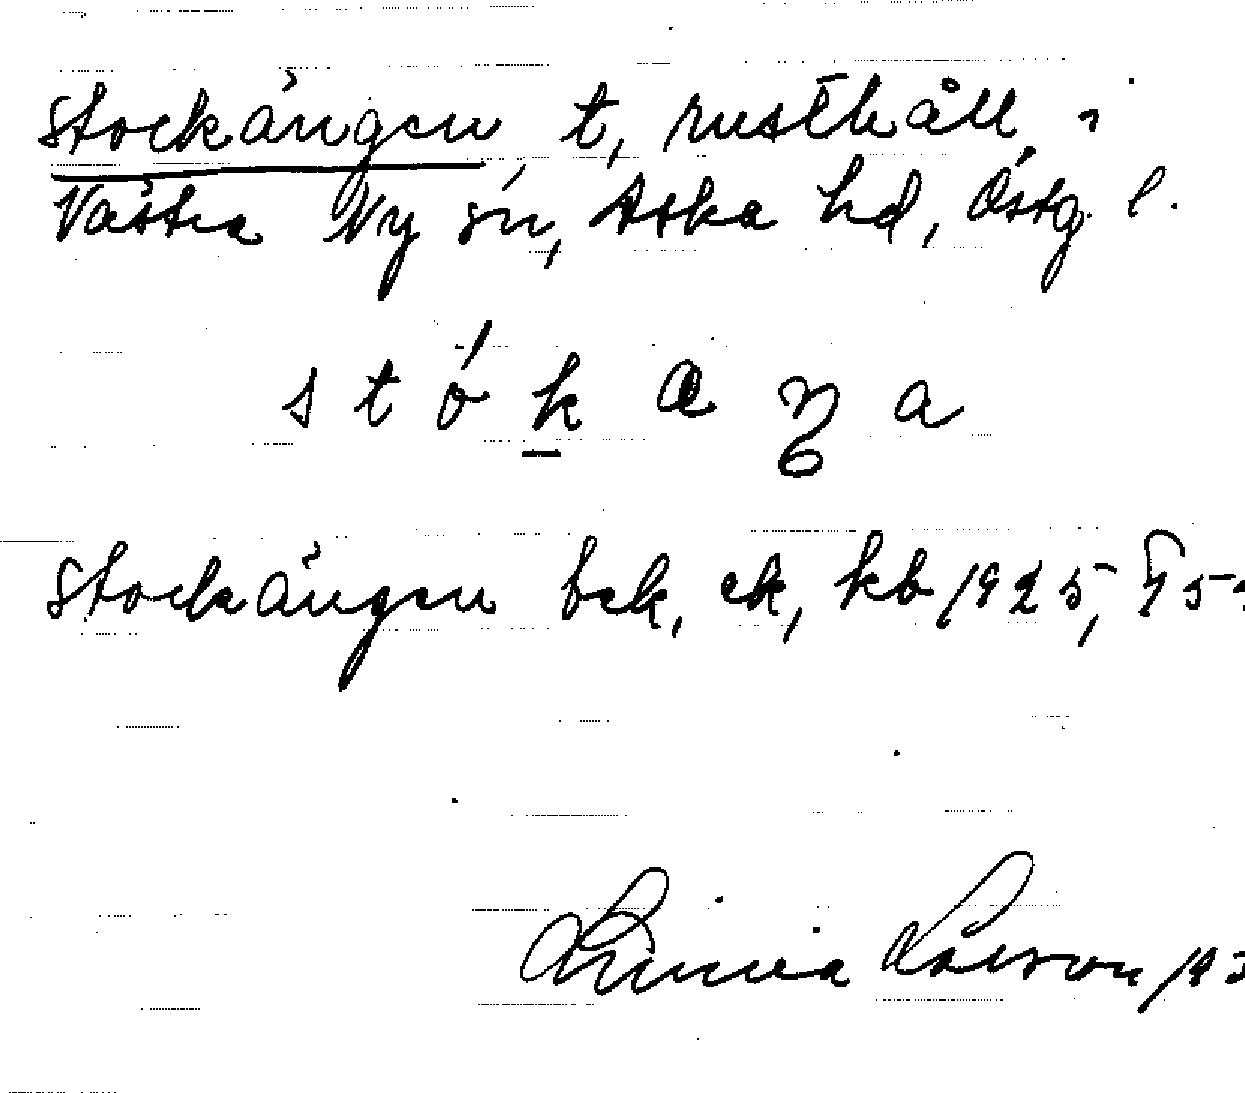 Stockängen, t, rusthåll i
Västra Ny sn, Aska hd, Östg. l.
s t ó k æ ŋ a
Stockängen bek, ek, kb 1925,
Linnéa Larson 193